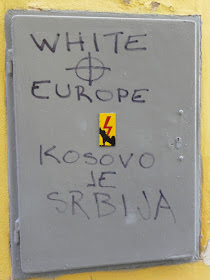 WHITE
EUROPE
KOSOVO
JE
SRBIJA